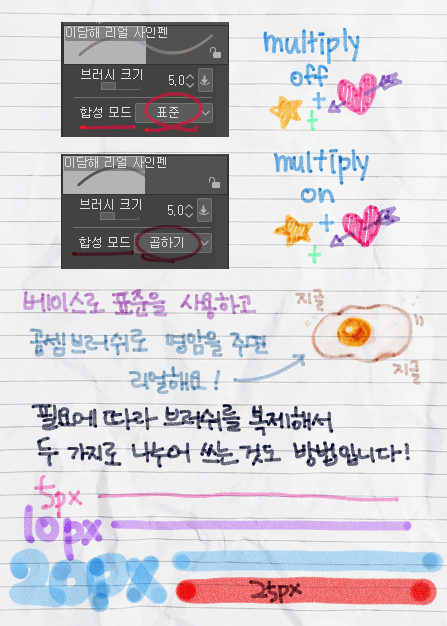 이담해 리얼 사인펜
브러시 크기 5.0
합성 모드 표준
multiply
off
이담해 리얼 사인펜
브러시 크기 5.0
합성 모드 곱하기
multiply
on
베이스로 표준을 사용하고
곱셈브러쉬로 명암을 주면
리얼해요!
지글
지글
필요에 따라 브러쉬를 복제해서
두 가지로 나누어 쓰는것도 방법입니다!
5px
10px
20px
25px